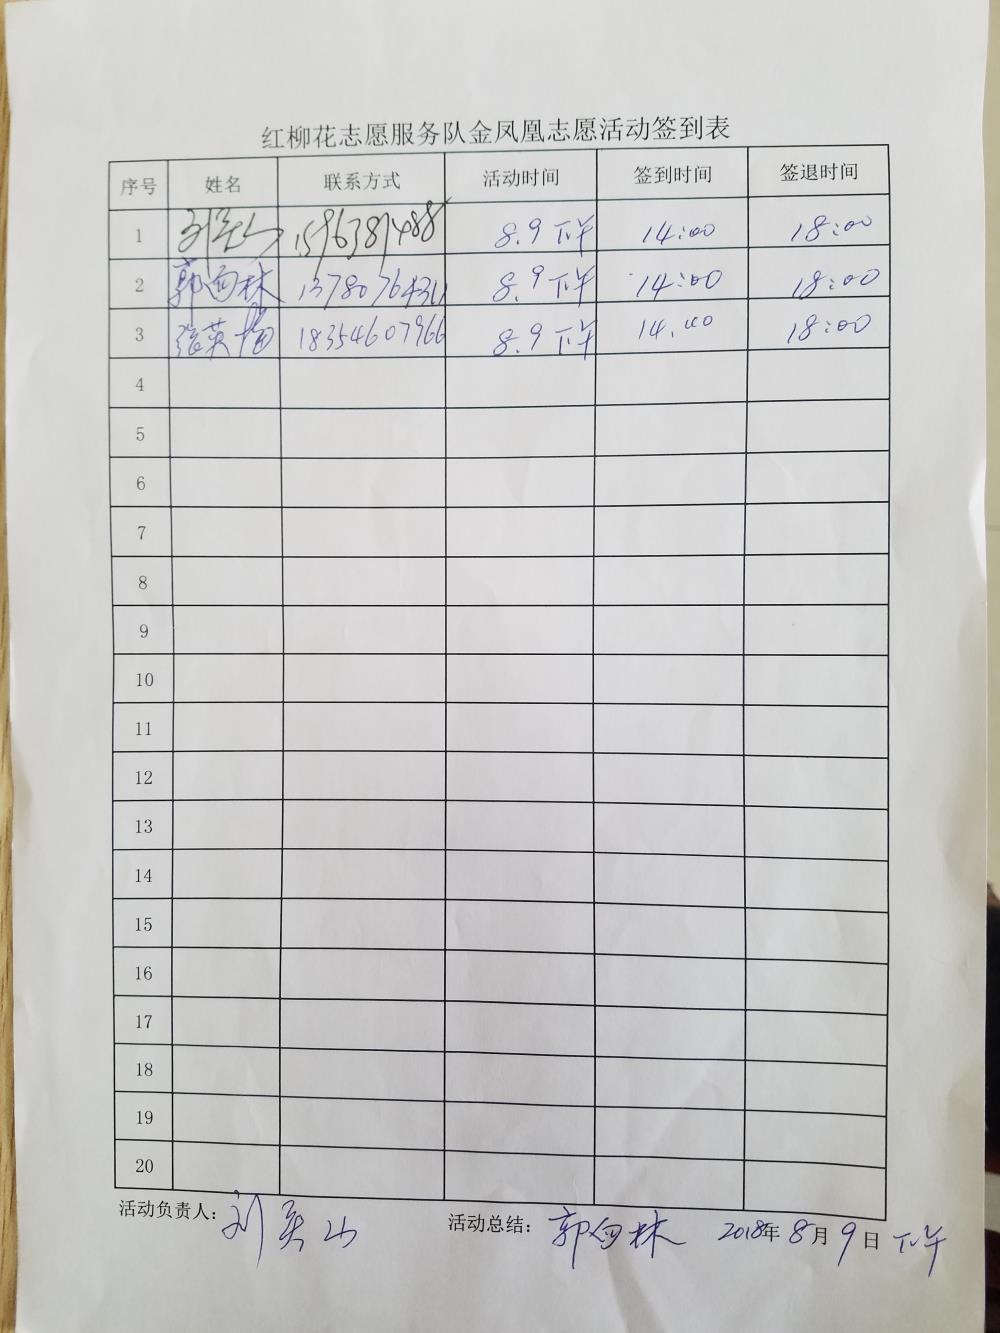 红柳花志愿服务队金凤凰志愿活动签到表
序号 姓名 联系方式 活动时间 签到时间 签退时间
1 刘英山 15963891488 8.9 下午 14:00 18:00
2 郭向林 1378076431 8.9 下午 14:00 18:00
3 张英梅 18354607966 8.9 下午 14:00 18:00
4
5
6
7
8
9
10
11
12
13
14
15
16
17
18
19
20
活动负责人: 刘英山 活动总结: 郭向林 2018年 8月 9日 下午